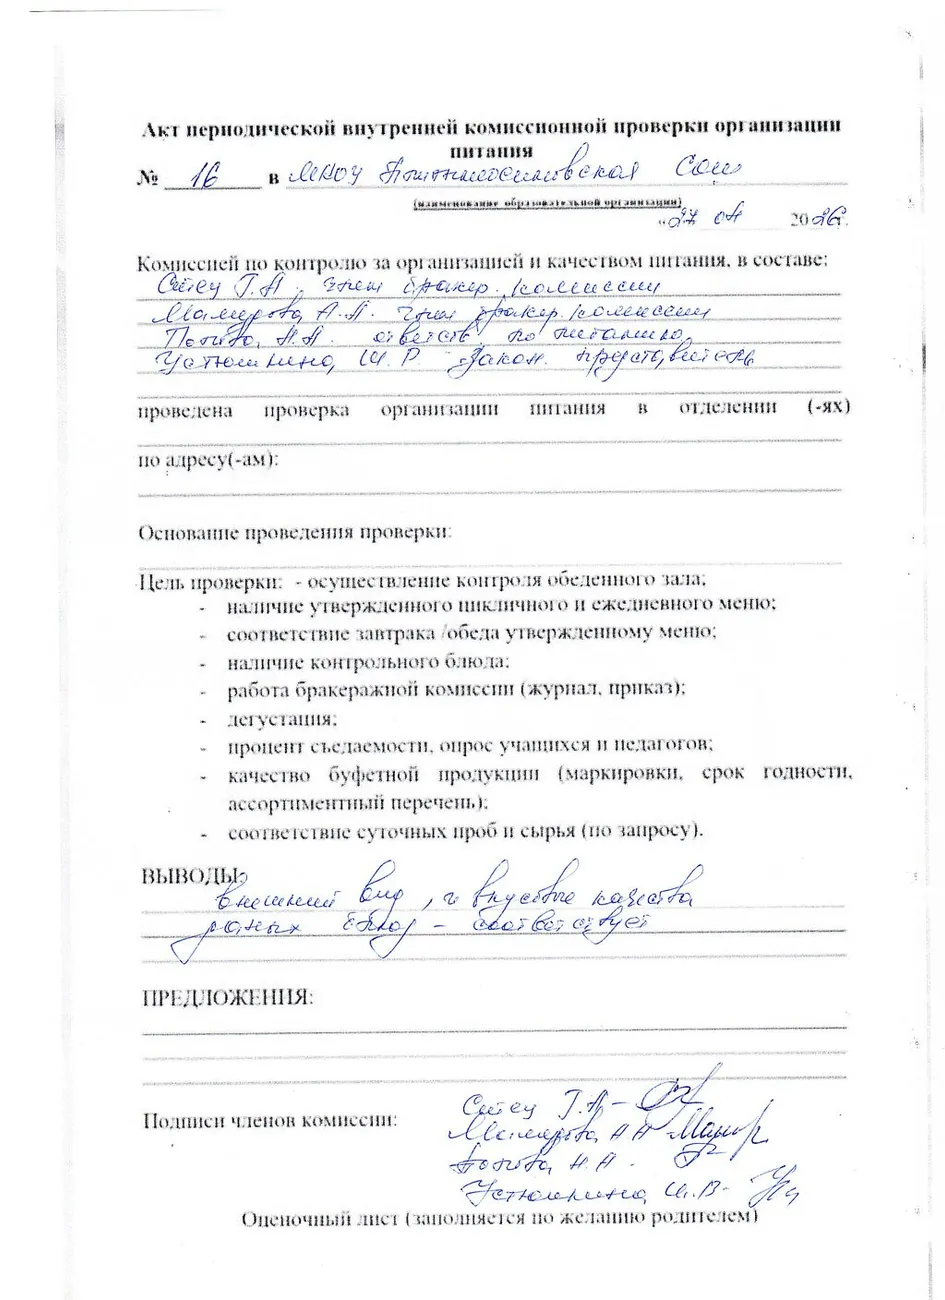 Акт периодической внутренней комиссионной проверки организации
питания
№ 16 в МКОУ СОШ
(наименование образовательной организации)
«27 04 2026г.
Комиссией по контролю за организацией и качеством питания, в составе:
Г.А. член бракер. комиссии
А.А. член бракер. комиссии
Попова Н.А. ответств по питанию
Устюшкина И.В законн. представитель
проведена проверка организации питания в отделении (-ях)
по адресу(-ам):
Основание проведения проверки:
Цель проверки: - осуществление контроля обеденного зала;
- наличие утвержденного цикличного и ежедневного меню;
- соответствие завтрака /обеда утвержденному меню;
- наличие контрольного блюда;
- работа бракеражной комиссии (журнал, приказ);
- дегустация;
- процент съедаемости, опрос учащихся и педагогов;
- качество буфетной продукции (маркировки, срок годности,
ассортиментный перечень);
- соответствие суточных проб и сырья (по запросу).
ВЫВОДЫ:
внешний вид, и вкусовые качества
данных блюд – соответствует
ПРЕДЛОЖЕНИЯ:
Подписи членов комиссии:
Г.А –
Попова Н.А.
Устюшкина И.В-
Оценочный лист (заполняется по желанию родителем)